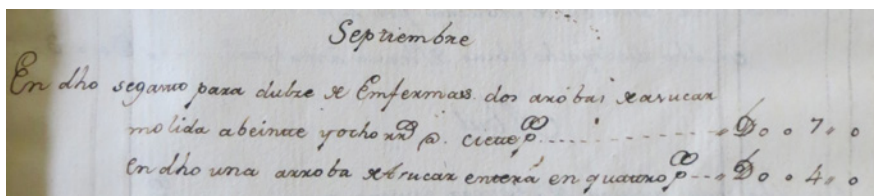 Septiembre
En dho segasto para dulze de Enfermas. dos arobas de asucar
molida abeinte yocho rr @. ciete p ... D o . o 7 . o
En dho una arroba de Asucar entera en quatro p ... D o . o 4 . o